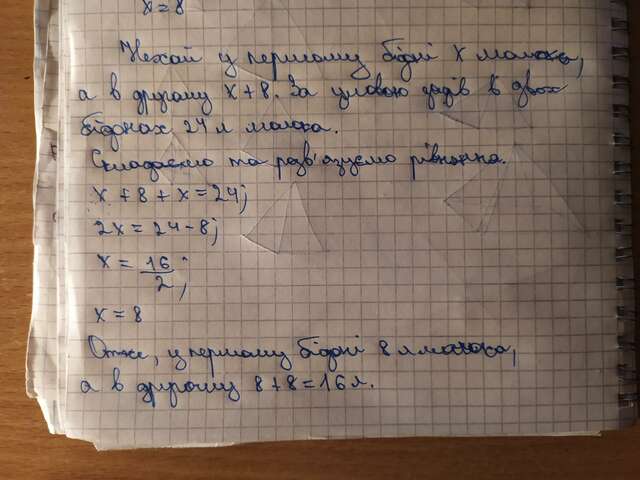 x = 8
Нехай у першому бідоні x молока,
а в другому x + 8. За умовою задачі в двох
бідонах 24 л молока.
Складаємо та розв'язуємо рівняння.
x + 8 + x = 24;
2x = 24 - 8;
x = 16/2;
x = 8
Отже, у першому бідоні 8 л молока,
а в другому 8 + 8 = 16 л.